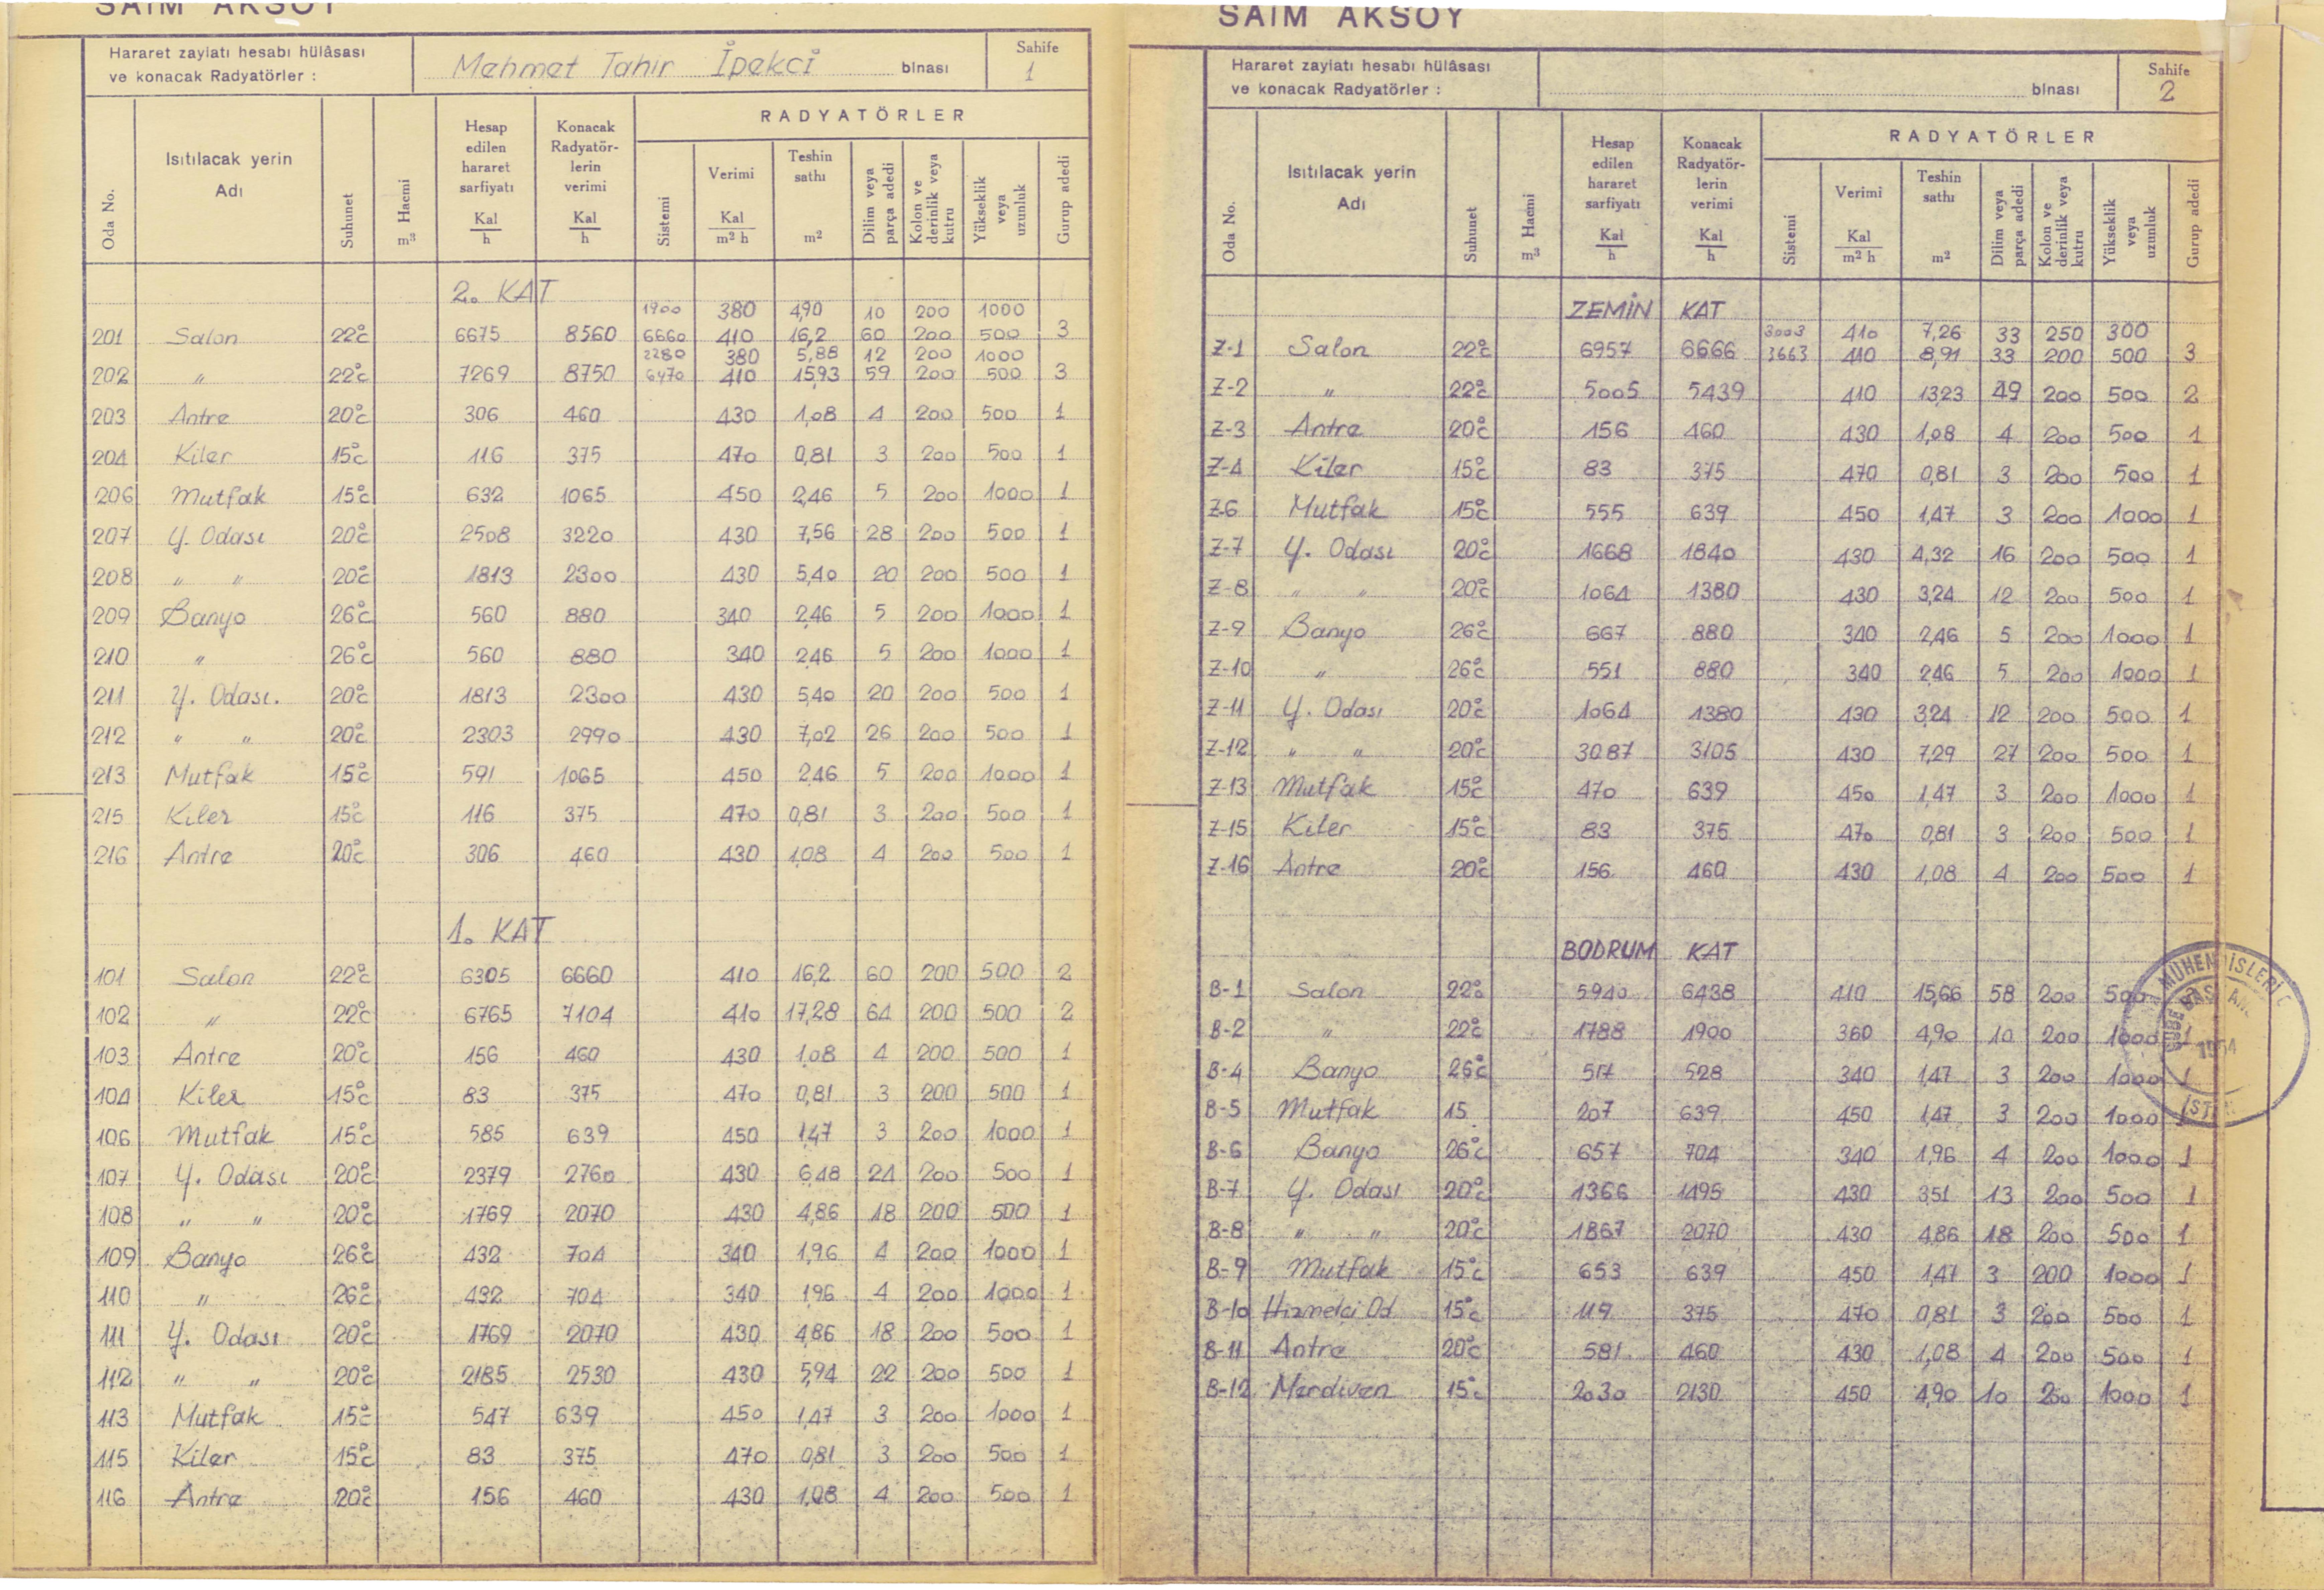 SAİM AKSOY
Hararet zayiatı hesabı hülâsası
ve konacak Radyatörler :
Mehmet Tahir İpekci binası
Sahife
1
Oda No.
Isıtılacak yerin
Adı
Suhunet
Hacmi
m³
Hesap
edilen
hararet
sarfiyatı
Kal
h
Konacak
Radyatör-
lerin
verimi
Kal
h
RADYATÖRLER
Sistemi
Verimi
Kal
m² h
Teshin
sathı
m²
Dilim veya
parça adedi
Kolon ve
derinlik veya
kutru
Yükseklik
veya
uzunluk
Gurup adedi
2. KAT
1900 380 4,90 10 200 1000
201 Salon 22°c 6675 8560 6660 410 16,2 60 200 500 3
2280 380 5,88 12 200 1000
202 " 22°c 7269 8750 6470 410 15,93 59 200 500 3
203 Antre 20°c 306 460 430 1,08 4 200 500 1
204 Kiler 15°c 116 375 470 0,81 3 200 500 1
206 Mutfak 15°c 632 1065 450 2,46 5 200 1000 1
207 Y. Odası 20°c 2508 3220 430 7,56 28 200 500 1
208 " " 20°c 1813 2300 430 5,40 20 200 500 1
209 Banyo 26°c 560 880 340 2,46 5 200 1000 1
210 " 26°c 560 880 340 2,46 5 200 1000 1
211 Y. Odası. 20°c 1813 2300 430 5,40 20 200 500 1
212 " " 20°c 2303 2990 430 7,02 26 200 500 1
213 Mutfak 15°c 591 1065 450 2,46 5 200 1000 1
215 Kiler 15°c 116 375 470 0,81 3 200 500 1
216 Antre 20°c 306 460 430 1,08 4 200 500 1
1. KAT
101 Salon 22°c 6305 6660 410 16,2 60 200 500 2
102 " 22°c 6765 7104 410 17,28 64 200 500 2
103 Antre 20°c 156 460 430 1,08 4 200 500 1
104 Kiler 15°c 83 375 470 0,81 3 200 500 1
106 Mutfak 15°c 585 639 450 1,47 3 200 1000 1
107 Y. Odası 20°c 2379 2760 430 6,48 24 200 500 1
108 " " 20°c 1769 2070 430 4,86 18 200 500 1
109 Banyo 26°c 432 704 340 1,96 4 200 1000 1
110 " 26°c 432 704 340 1,96 4 200 1000 1
111 Y. Odası 20°c 1769 2070 430 4,86 18 200 500 1
112 " " 20°c 2185 2530 430 5,94 22 200 500 1
113 Mutfak 15°c 547 639 450 1,47 3 200 1000 1
115 Kiler 15°c 83 375 470 0,81 3 200 500 1
116 Antre 20°c 156 460 430 1,08 4 200 500 1
SAİM AKSOY
Hararet zayiatı hesabı hülâsası
ve konacak Radyatörler :
binası
Sahife
2
Oda No.
Isıtılacak yerin
Adı
Suhunet
Hacmi
m³
Hesap
edilen
hararet
sarfiyatı
Kal
h
Konacak
Radyatör-
lerin
verimi
Kal
h
RADYATÖRLER
Sistemi
Verimi
Kal
m² h
Teshin
sathı
m²
Dilim veya
parça adedi
Kolon ve
derinlik veya
kutru
Yükseklik
veya
uzunluk
Gurup adedi
ZEMİN KAT
3003 410 7,26 33 250 300
Z-1 Salon 22°c 6957 6666 3663 410 8,91 33 200 500 3
Z-2 " 22°c 5005 5439 410 13,23 49 200 500 2
Z-3 Antre 20°c 156 460 430 1,08 4 200 500 1
Z-4 Kiler 15°c 83 375 470 0,81 3 200 500 1
Z-6 Mutfak 15°c 555 639 450 1,47 3 200 1000 1
Z-7 Y. Odası 20°c 1668 1840 430 4,32 16 200 500 1
Z-8 " " 20°c 1064 1380 430 3,24 12 200 500 1
Z-9 Banyo 26°c 667 880 340 2,46 5 200 1000 1
Z-10 " 26°c 551 880 340 2,46 5 200 1000 1
Z-11 Y. Odası 20°c 1064 1380 430 3,24 12 200 500 1
Z-12 " " 20°c 3087 3105 430 7,29 27 200 500 1
Z-13 Mutfak 15°c 470 639 450 1,47 3 200 1000 1
Z-15 Kiler 15°c 83 375 470 0,81 3 200 500 1
Z-16 Antre 20°c 156 460 430 1,08 4 200 500 1
BODRUM KAT
B-1 Salon 22° 5940 6438 410 15,66 58 200 500
B-2 " 22°c 1788 1900 360 4,90 10 200 1000 1
B-4 Banyo 26°c 517 528 340 1,47 3 200 1000 1
B-5 Mutfak 15 207 639 450 1,47 3 200 1000
B-6 Banyo 26°c 657 704 340 1,96 4 200 1000 1
B-7 Y. Odası 20°c 1366 1495 430 3,51 13 200 500 1
B-8 " " 20°c 1867 2070 430 4,86 18 200 500 1
B-9 Mutfak 15°c 653 639 450 1,47 3 200 1000 1
B-10 Hizmetci Od. 15°c 119 375 470 0,81 3 200 500 1
B-11 Antre 20°c 581 460 430 1,08 4 200 500 1
B-12 Merdiven 15°c 2030 2130 450 4,90 10 200 1000 1
MÜHENDİSLERİ
1954